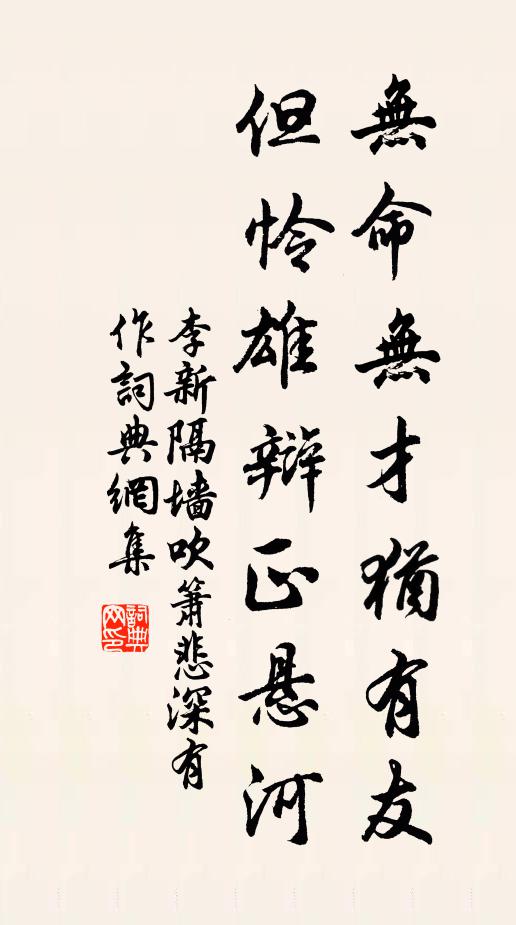 無命無才猶有友
但怜雄辯正懸河
李新隔墻吹簫悲深有
作詞典網集
詞典網印